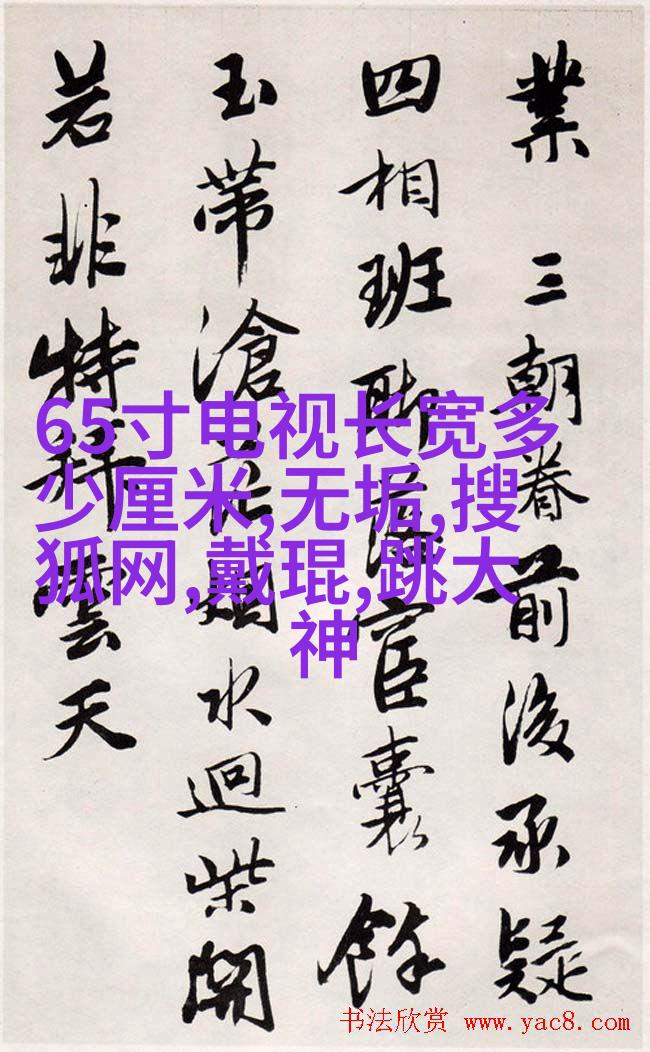 業 三朝眷前後承疑
四相班聯宦囊餘
玉帶滄烟水迴柴開
若非特雲天
65寸电视长宽多
少厘米,无垢,搜
狐网,戴琨,跳大
神
书法欣赏 www.yac8.com